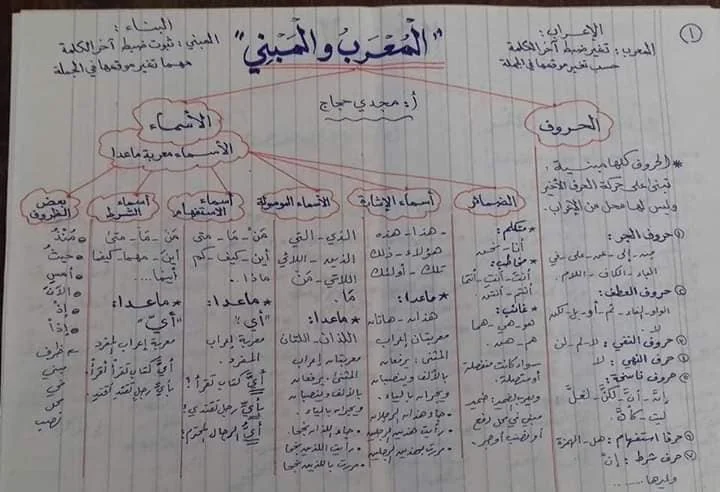 ١
الإعراب :
المعرب : تغير ضبط آخر الكلمة
حسب تغير موقعها في الجملة
"المُعْرَبُ والمَبْنِي"
البناء :
المبني : ثبوت ضبط آخر الكلمة
مهما تغير موقعها في الجملة
أ. مجدي حجاج
الحروف
* الحروف كلها مبنية،
تبنى على حركة الحرف الأخير
وليس لها محل من الإعراب.
حروف الجر :
من - إلى - عن - على - في
الباء - الكاف - اللام.
حروف العطف :
الواو - الفاء - ثم - أو - بل - لكن
لا.
حروف النفي : لا - لم - لن
حرف النهي : لا
حروف ناسخة :
إنَّ - أنَّ - لكنَّ - لعلَّ
ليت - كأنَّ
حرفا استفهام : هل - الهمزة
حرف شرط : إنْ
وغيرها.....
الأسماء
الأسماء معربة ماعدا
الضمائر
* متكلم :
أنا - نحن
* مخاطب :
أنتَ - أنتِ - أنتما
أنتم - أنتن
* غائب :
هو - هي - هما
هم - هن.
سواء كانت منفصلة
أو متصلة.
ضمير
مبني في محل رفع
أو نصب أو جر.
أسماء الإشارة
- هذا - هذه
هؤلاء - ذلك
تلك - أولئك
* ماعدا :
هذان - هاتان
معربتان إعراب
المثنى : يرفعان
بالألف وينصبان
ويجران بالياء.
• جاء هذان الرجلان
• رأيت هذين الرجلين
• مررت بهذين الرجلين
الأسماء الموصولة
الذي - التي
الذين - اللاتي
اللائي - مَنْ
مَا.
* ماعدا :
اللذان - اللتان
معربتان إعراب
المثنى : يرفعان
بالألف وينصبان
ويجران بالياء.
• جاء اللذان نجحا
• رأيت اللذين نجحا
• مررت باللذين نجحا
أسماء الاستفهام
مَنْ - مَا - متى
أين - كيف - كم
ماذا.
* ماعدا :
"أي" :
معربة إعراب
المفرد.
أيَّ كتاب تقرأ؟
بأيِّ رجل تقتدي؟
أيُّ الرجال محترم؟
أسماء الشرط
مَنْ - مَا - متى
أين - مهما - كيفما
أينما.
* ماعدا :
"أيّ"
معربة إعراب المفرد
أيَّ كتاب تقرأ أقرأ.
بأيِّ رجل تقتد أقتد.
بعض الظروف
مُنْذُ
حيثُ
أمسِ
الآنَ
إذْ
إذا
ظرف
مبني
في
محل
نصب